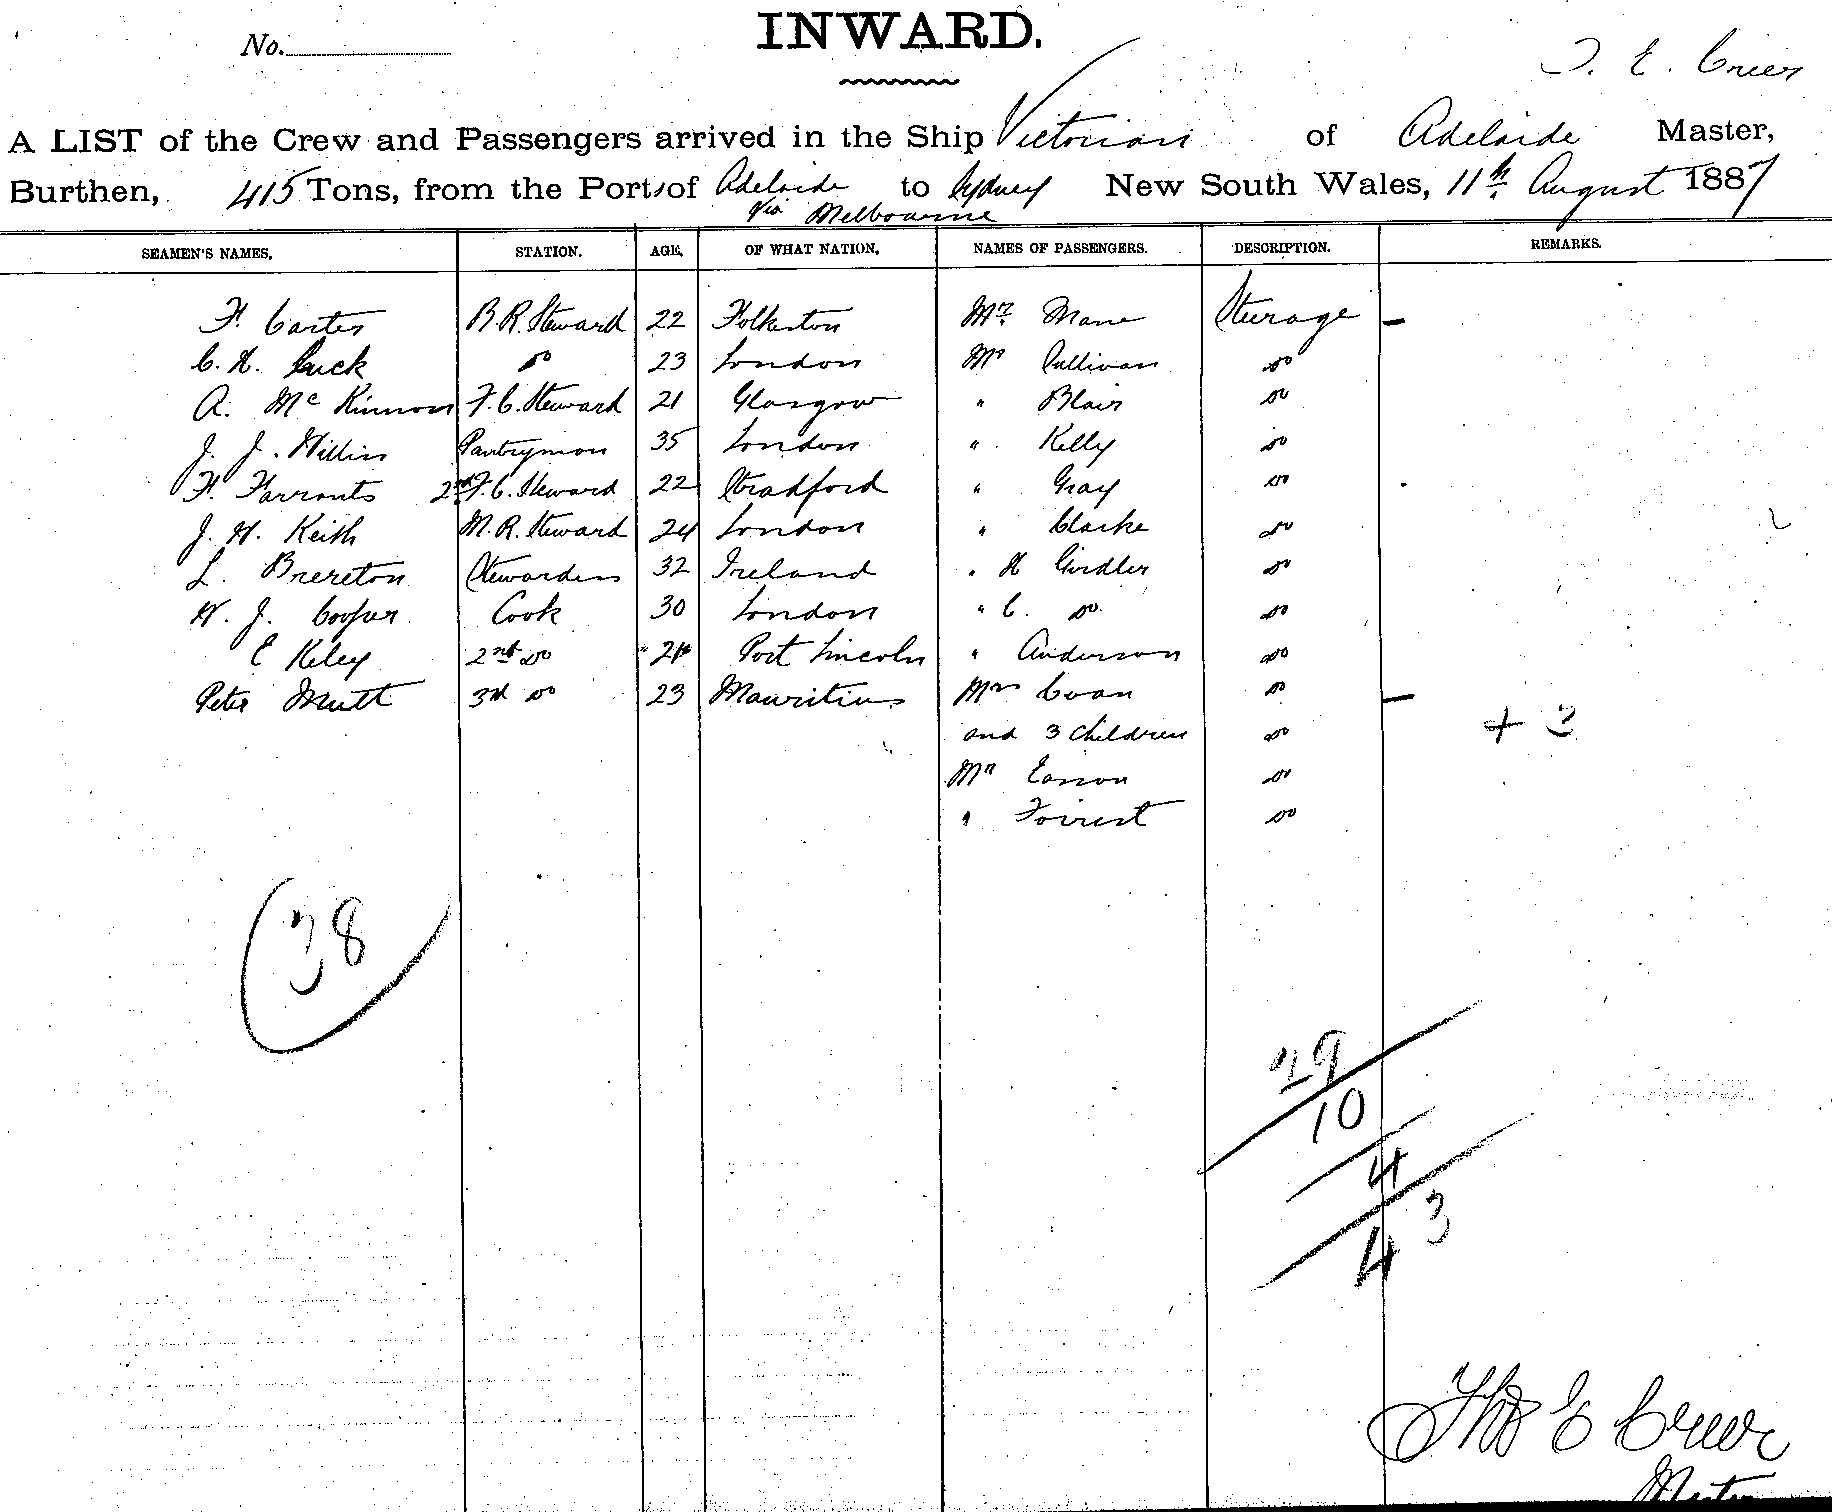 No.
INWARD.
T. E. Creer
A LIST of the Crew and Passengers arrived in the Ship Victorian of Adelaide Master,
Burthen, 415 Tons, from the Port of Adelaide to Sydney New South Wales, 11th August 1887
via Melbourne
SEAMEN'S NAMES. STATION. AGE. OF WHAT NATION. NAMES OF PASSENGERS. DESCRIPTION. REMARKS.
F. Carter B. R. Steward 22 Folkeston Mr. Mane Steerage –
C. H. Luck do 23 London Mr Sullivan do
A. McKinnon F. C. Steward 21 Glasgow " Blair do
J. J. Willis Pantryman 35 London " Kelly do
F. Farrants 2nd F. C. Steward 22 Stradford " Gray do
J. H. Keith M. R. Steward 24 London " Clarke do
L. Brereton Stewardess 32 Ireland " H Girdler do
W. J. Cooper Cook 30 London " C. do do
E Kiley 2nd do 21 Port Lincoln " Anderson do
Peter Mutt 3rd do 23 Mauritius Mrs Cowan do –
and 3 children do + 3
Mr Easson do
" Forrest do
38
29
10
4
43
Thos E Creer
Master